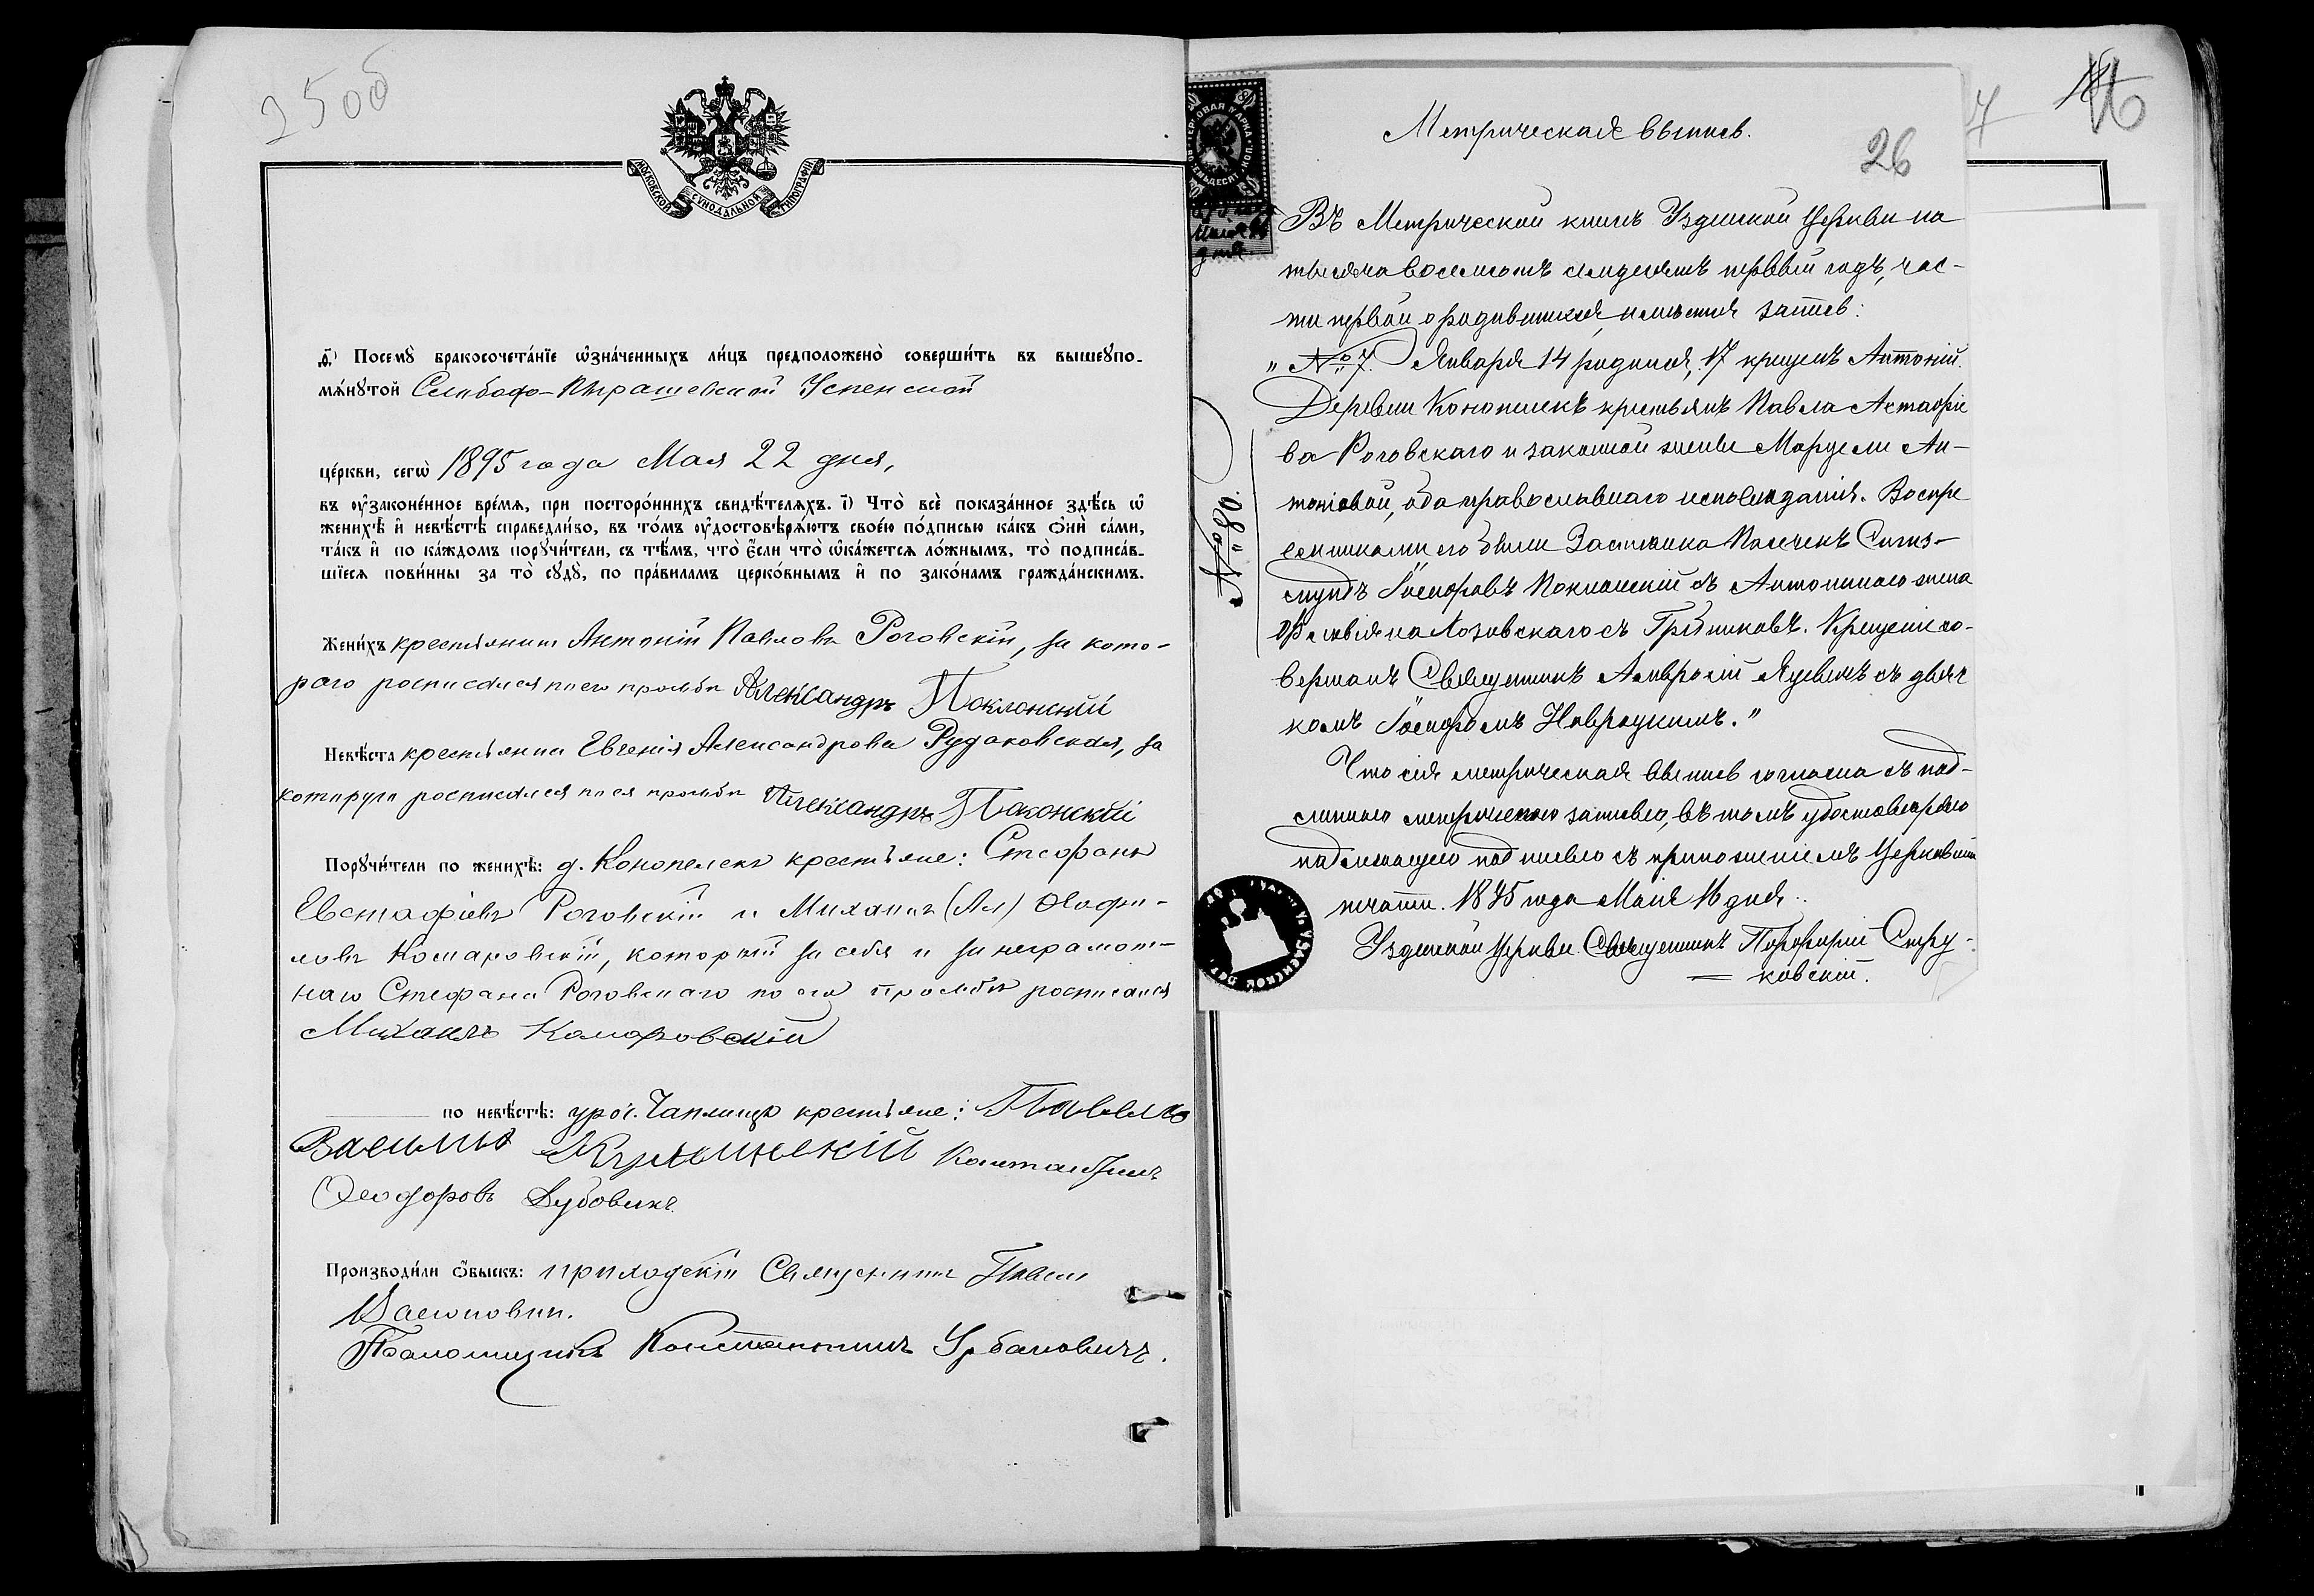 25об
МОСКОВСКОЙ СУНОДАЛЬНОЙ ТИПОГРАФІИ
д҃) Посемꙋ̀ бракосочета́нїе ѡ҆зна́ченныхъ ли́цъ предположено̀ соверши́ть въ вышеꙋпо-
мѧ́нꙋтой Слободо-Пырашевской Успенской
це́ркви, сегѡ̀ 1895 года Мая 22 дня,
въ ᲂу҆законе́нное вре́мѧ, при посторо́ннихъ свидѣ́телѧхъ. і҃) Что̀ всѐ показа́нное здѣ́сь ѡ҆
женихѣ̀ и҆ невѣ́стѣ справедли́во, въ то́мъ ᲂу҆достовѣрѧ́ютъ свое́ю по́дписью ка́къ ѻ҆нѝ са́ми,
та́къ и҆ по ка́ждомъ порꙋчи́тели, съ тѣ́мъ, что̀ є҆́сли что̀ ѡ҆ка́жетсѧ ло́жнымъ, то̀ подписа́в-
шїесѧ пови́нны за то̀ сꙋдꙋ̀, по пра́виламъ церко́внымъ и҆ по зако́намъ гражда́нскимъ.
Жени́хъ крестьянинъ Антоній Павловъ Роговскій, за кото-
раго росписался по его прозьбѣ Александръ Поклонскій
Невѣ́ста крестьянка Евгенія Александрова Рудаковская, за
которую росписался по ея прозьбѣ Александръ Поконскій
Порꙋчи́тели по женихѣ̀: д. Конопелекъ крестьяне: Стефанъ
Евстафіевъ Роговскій и Михаилъ (Ал) Ѳеофи-
ловъ Комаровскій, который за себя и за неграмот-
наго Стефана Роговскаго по его прозьбѣ росписался
Михаилъ Комаровскій
по невѣ́стѣ: уроч. Чаплища крестьяне: Павелъ
Василевъ Константинъ
Ѳеодоровъ Дубовикъ.
Производи́ли ѻ҆́быскъ: приходскій Священникъ Павелъ
Псаломщикъ Константинъ Урбановичъ.
Метрическая выпись.
26
7
16
Въ Метрической книгѣ Узденской Церкви на
тысяча восемьсотъ семьдесятъ первый годъ, час-
ти первой о родившихся, имѣется запись:
„№ 7. Января 14 родился, 17 крещенъ Антоній.
Деревни Конопелекъ крестьянъ Павла Астафіе
ва Роговскаго и законной жены Марцели Ан-
тоніовой, оба православнаго исповѣданія. Воспре
емниками его были Сигиз-
мундъ Іосифовъ Поклонскій съ Антониною жена
Лозовскаго съ Крещеніе со-
вершалъ Священникъ Амвросій съ дьяч
комъ Іосифомъ Навроцкимъ."
Что сія метрическая выпись согласна съ под-
линною метрическою записью, въ томъ удостовѣряю
надлежащею подписью съ приложеніемъ Церковной
печати. 1895 года Маія 16 дня.
Узденской Церкви Священникъ Порфирій Стру-
= ковскій.
№ 80